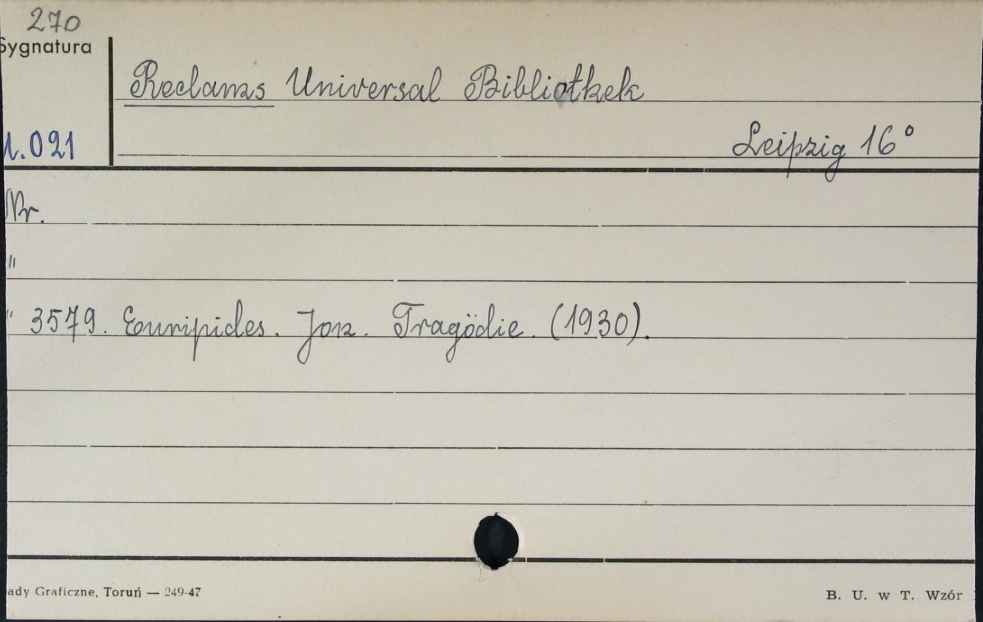 270
Sygnatura
Reclams Universal Bibliothek
1.021
Leipzig 16°
Nr.
"
" 3579. Euripides. Jon. Tragödie. (1930).
ady Graficzne, Toruń — 249-47
B. U. w T. Wzór